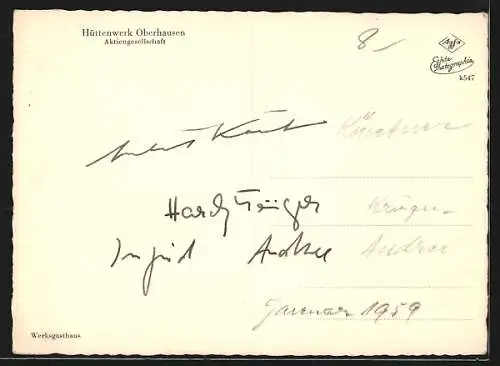 Hüttenwerk Oberhausen
Aktiengesellschaft
8
Agfa
Echte
Photographie
k547
Körstner
Hardy Krüger
Krüger
Ingrid Andree
Andree
Januar 1959
Werksgasthaus